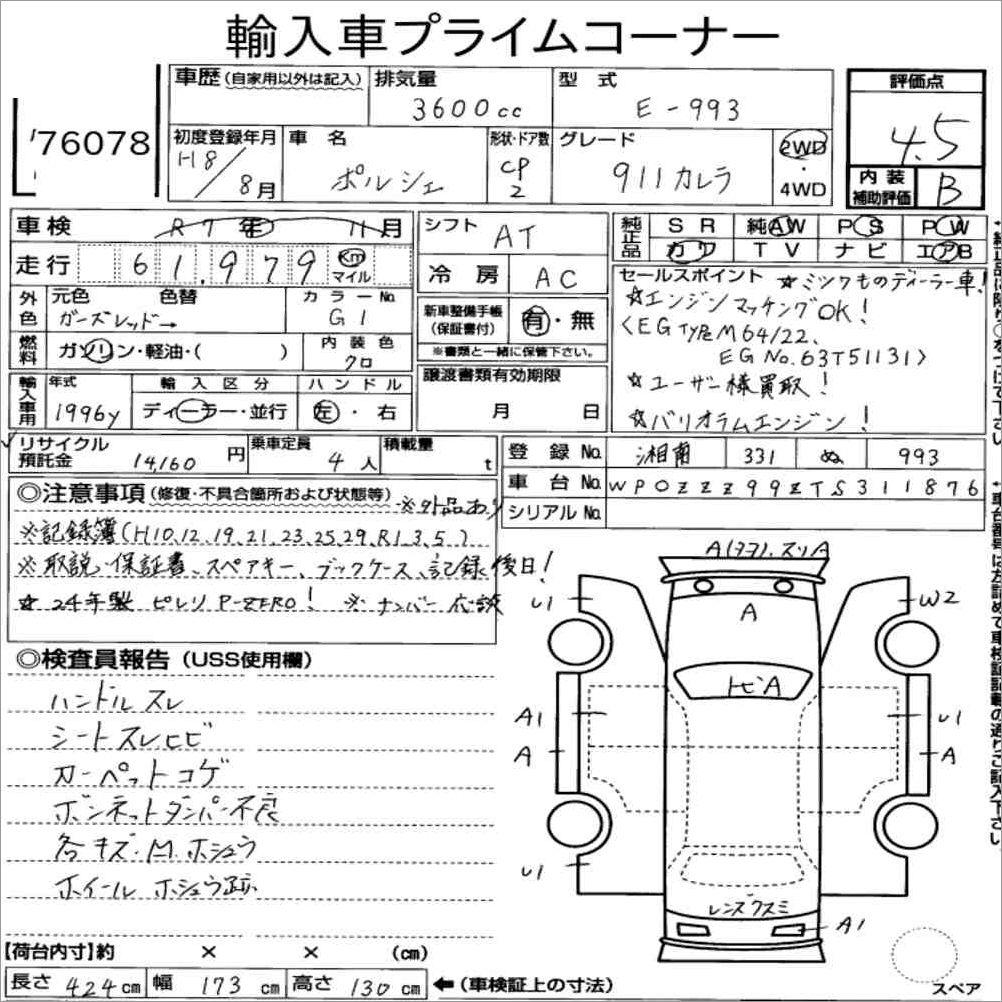 輸入車プライムコーナー
76078
車歴(自家用以外は記入)
排気量
3600cc
型式
E-993
評価点
4.5
初度登録年月
H8/8月
車名
ポルシェ
形状・ドア数
CP
2
グレード
911カレラ
2WD
・
4WD
内装
補助評価
B
車検
R7年 11月
走行
61,979
Km
マイル
シフト
AT
冷房
AC
純正品
SR
純AW
PS
PW
カワ
TV
ナビ
エアB
外色
元色
色替
ガーズレッド→
カラーNo.
G1
燃料
ガソリン・軽油・( )
内装色
クロ
新車整備手帳
(保証書付)
有・無
※書類と一緒に保管下さい。
セールスポイント ☆ミツワものディーラー車!
☆エンジンマッチングOK!
<EG TYPE M64/22、
EG No.63T51131>
☆ユーザー様買取!
☆バリオラムエンジン!
輸入車用
年式
1996y
輸入区分
ディーラー・並行
ハンドル
左・右
譲渡書類有効期限
月 日
リサイクル
預託金
14,160円
乗車定員
4人
積載量
t
登録No.
湘南
331
ぬ
993
車台No.
WP0ZZZ99ZTS311876
シリアルNo.
◎注意事項(修復・不具合箇所および状態等)
※外品あり
※記録簿(H10,12,19,21,23,25,29,R1,3,5)
※取説、保証書、スペアキー、ブックケース、記録 後日!
☆24年製 ピレリ P-ZERO! ※ナンバー応談
◎検査員報告(USS使用欄)
ハンドルスレ
シートスレヒビ
カーペットコゲ
ボンネットダンパー不良
各キズ・M.ホシュウ
ホイール ホシュウ跡
A(ﾇﾇﾌ).スリA
U1
W2
A
トビA
A1
A
U1
A
U1
レンズクスミ
A1
【荷台内寸】約 × × (cm)
長さ 424cm
幅 173cm
高さ 130cm
←(車検証上の寸法)
スペア
車台番号は左詰めで車検証記載の通りご記入下さい。